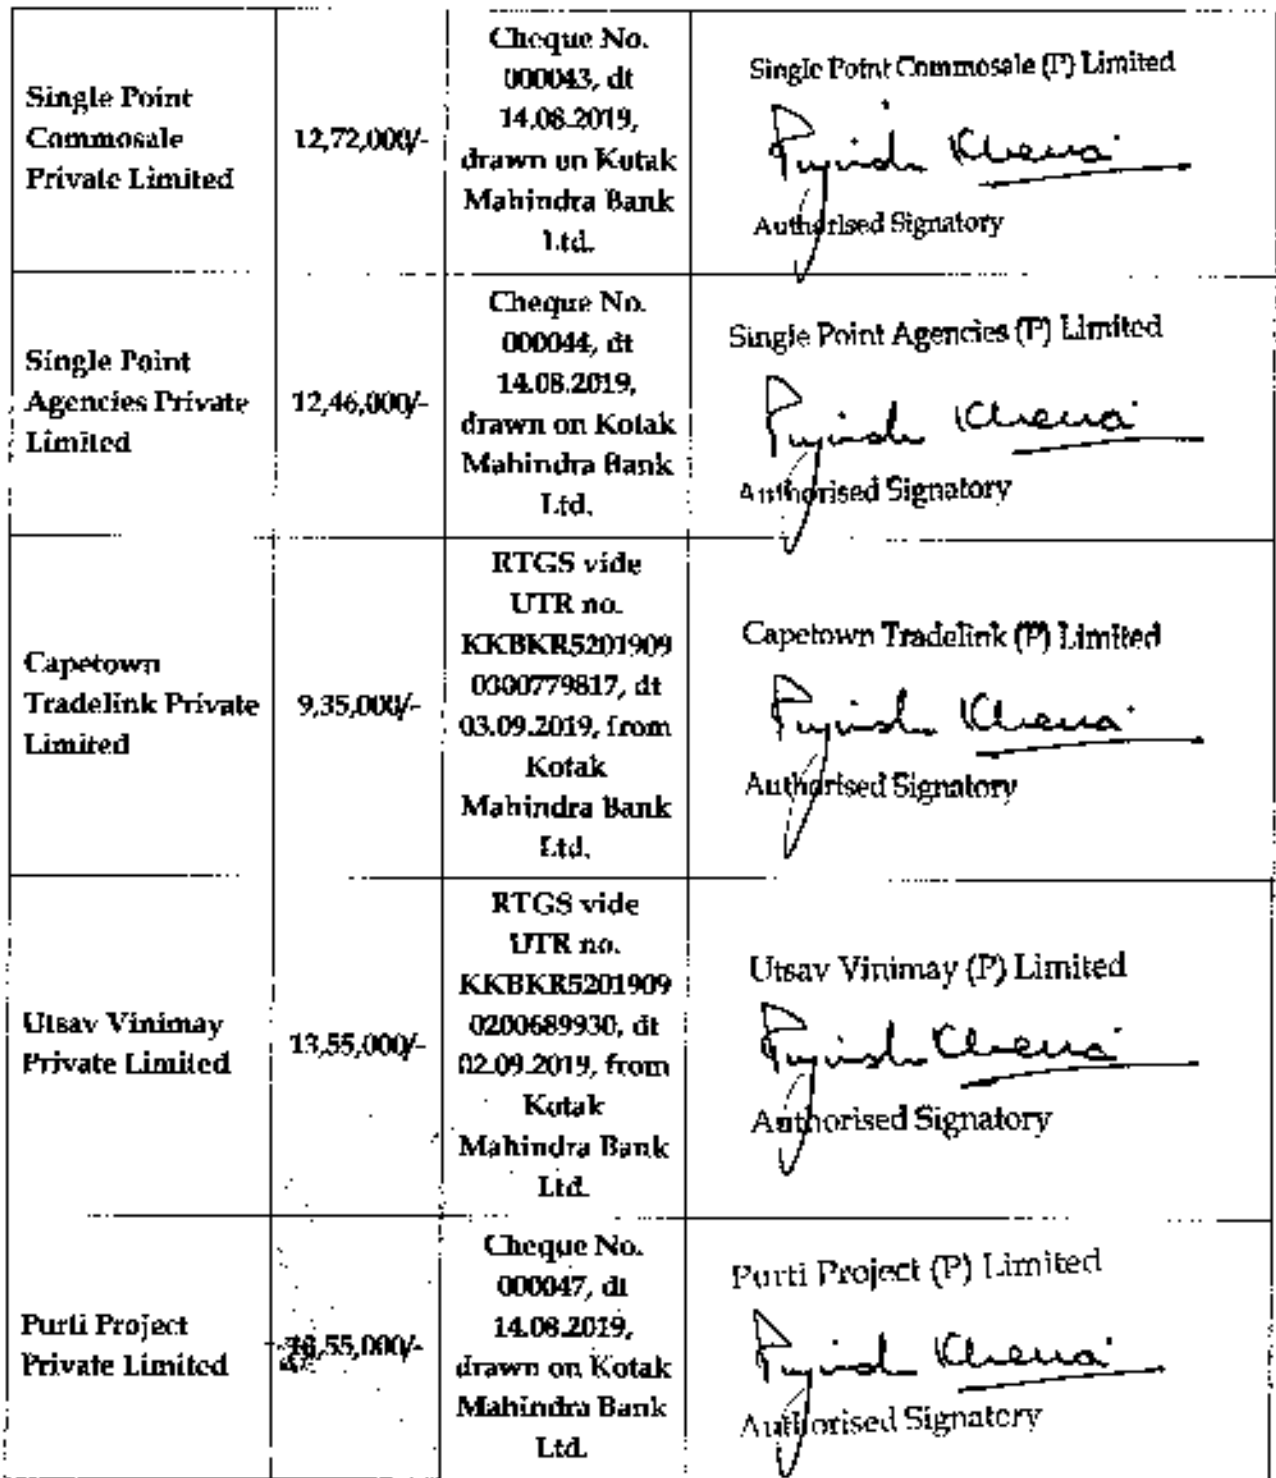 Single Point
Commosale
Private Limited
12,72,000/-
Cheque No.
000043, dt
14.08.2019,
drawn on Kotak
Mahindra Bank
Ltd.
Single Point Commosale (P) Limited
Authorised Signatory
Single Point
Agencies Private
Limited
12,46,000/-
Cheque No.
000044, dt
14.08.2019,
drawn on Kotak
Mahindra Bank
Ltd.
Single Point Agencies (P) Limited
Authorised Signatory
Capetown
Tradelink Private
Limited
9,35,000/-
RTGS vide
UTR no.
KKBKR5201909
0300779817, dt
03.09.2019, from
Kotak
Mahindra Bank
Ltd.
Capetown Tradelink (P) Limited
Authorised Signatory
Utsav Vinimay
Private Limited
13,55,000/-
RTGS vide
UTR no.
KKBKR5201909
0200689930, dt
02.09.2019, from
Kotak
Mahindra Bank
Ltd.
Utsav Vinimay (P) Limited
Authorised Signatory
Purti Project
Private Limited
Cheque No.
000047, dt
14.08.2019,
drawn on Kotak
Mahindra Bank
Ltd.
Purti Project (P) Limited
Authorised Signatory